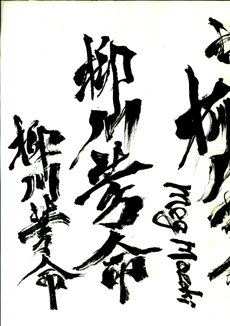 柳川芳命
柳川芳命
Meg Mazaki